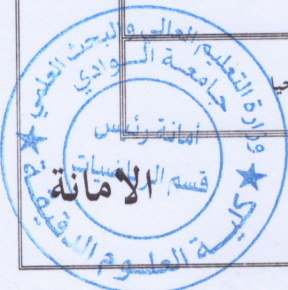 وزارة التعليم العالي و البحث العلمي
جامعة الوادي
أمانة رئيس
قسم الرياضيات
الامانة
كلية العلوم الدقيقة